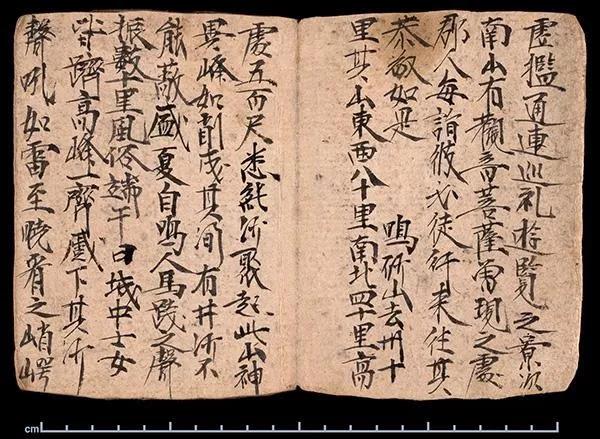 虛檻通連巡礼遊覽之景次
南山有觀音菩薩曾現之處
郡人每詣彼必徒行来往其
恭敬如是 鳴沙山去州十
里其山東西八十里南北四十里高
處五百尺悉純沙聚起此山神
異峰如削成其間有井沙不
能蔽盛夏自鳴人馬踐之聲
振數十里風俗端午日城中士女
皆躋高峰一齊蹙下其沙
聲吼如雷至曉看之峭崿
cm